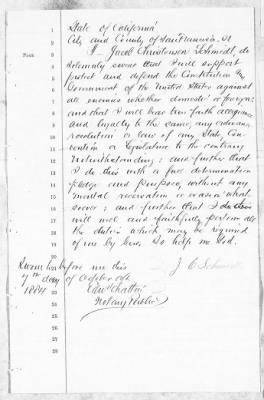 State of California
City and County of San Francisco, SS
I Jacob Christensen Schmidt, do
solemnly swear that I will support
protect and defend the Constitution and
Government of the United States against
all enemies whether domestic or foreign:
and that I will bear true faith allegiance
and loyalty to the same, any ordinance
resolution or law of any State, Con
vention or Legislature to the contrary
notwithstanding; and further that
I do this with a full determination
pledge and purpose, without any
mental reservation or evasion what
soever; and further that I
will well and faithfully perform all
the duties which may be required
of me by law, So help me God.
Sworn to before me this
7th day of October
1884
J. C. Schmidt
Notary Public
1
2
3
4
5
6
7
8
9
10
11
12
13
14
15
16
17
18
19
20
21
22
23
24
25
26
27
28